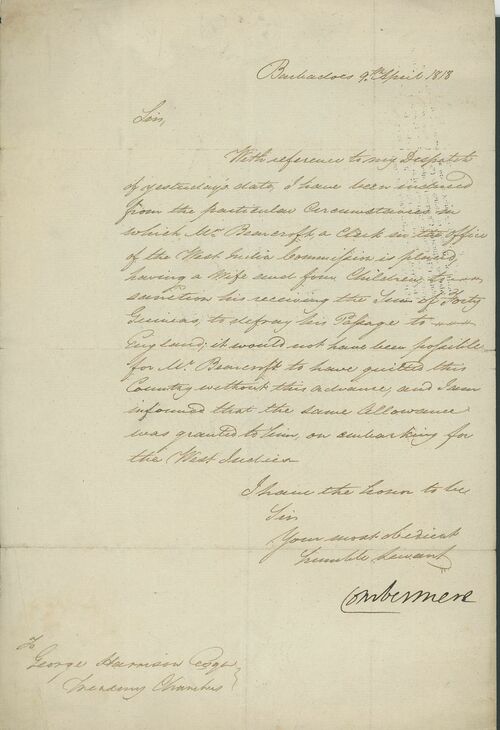 Barbadoes 9.th April 1818
Sir,
With reference to my Despatch
of yesterday's date, I have been induced
from the particular Circumstances in
which Mr Bearcroft, a Clerk in the office
of the West India Commission is placed,
having a Wife and four Children, to
sanction his receiving the Sum of Forty
Guineas, to defray his Passage to
England; it would not have been possible
for Mr. Bearcroft to have quitted this
Country without this advance, and I am
informed that the same Allowance
was granted to him, on embarking for
the West Indies
I have the honor to be
Sir
Your most obedient
humble Servant
Combermere
To
George Harrison Esqr
Treasury Chambers